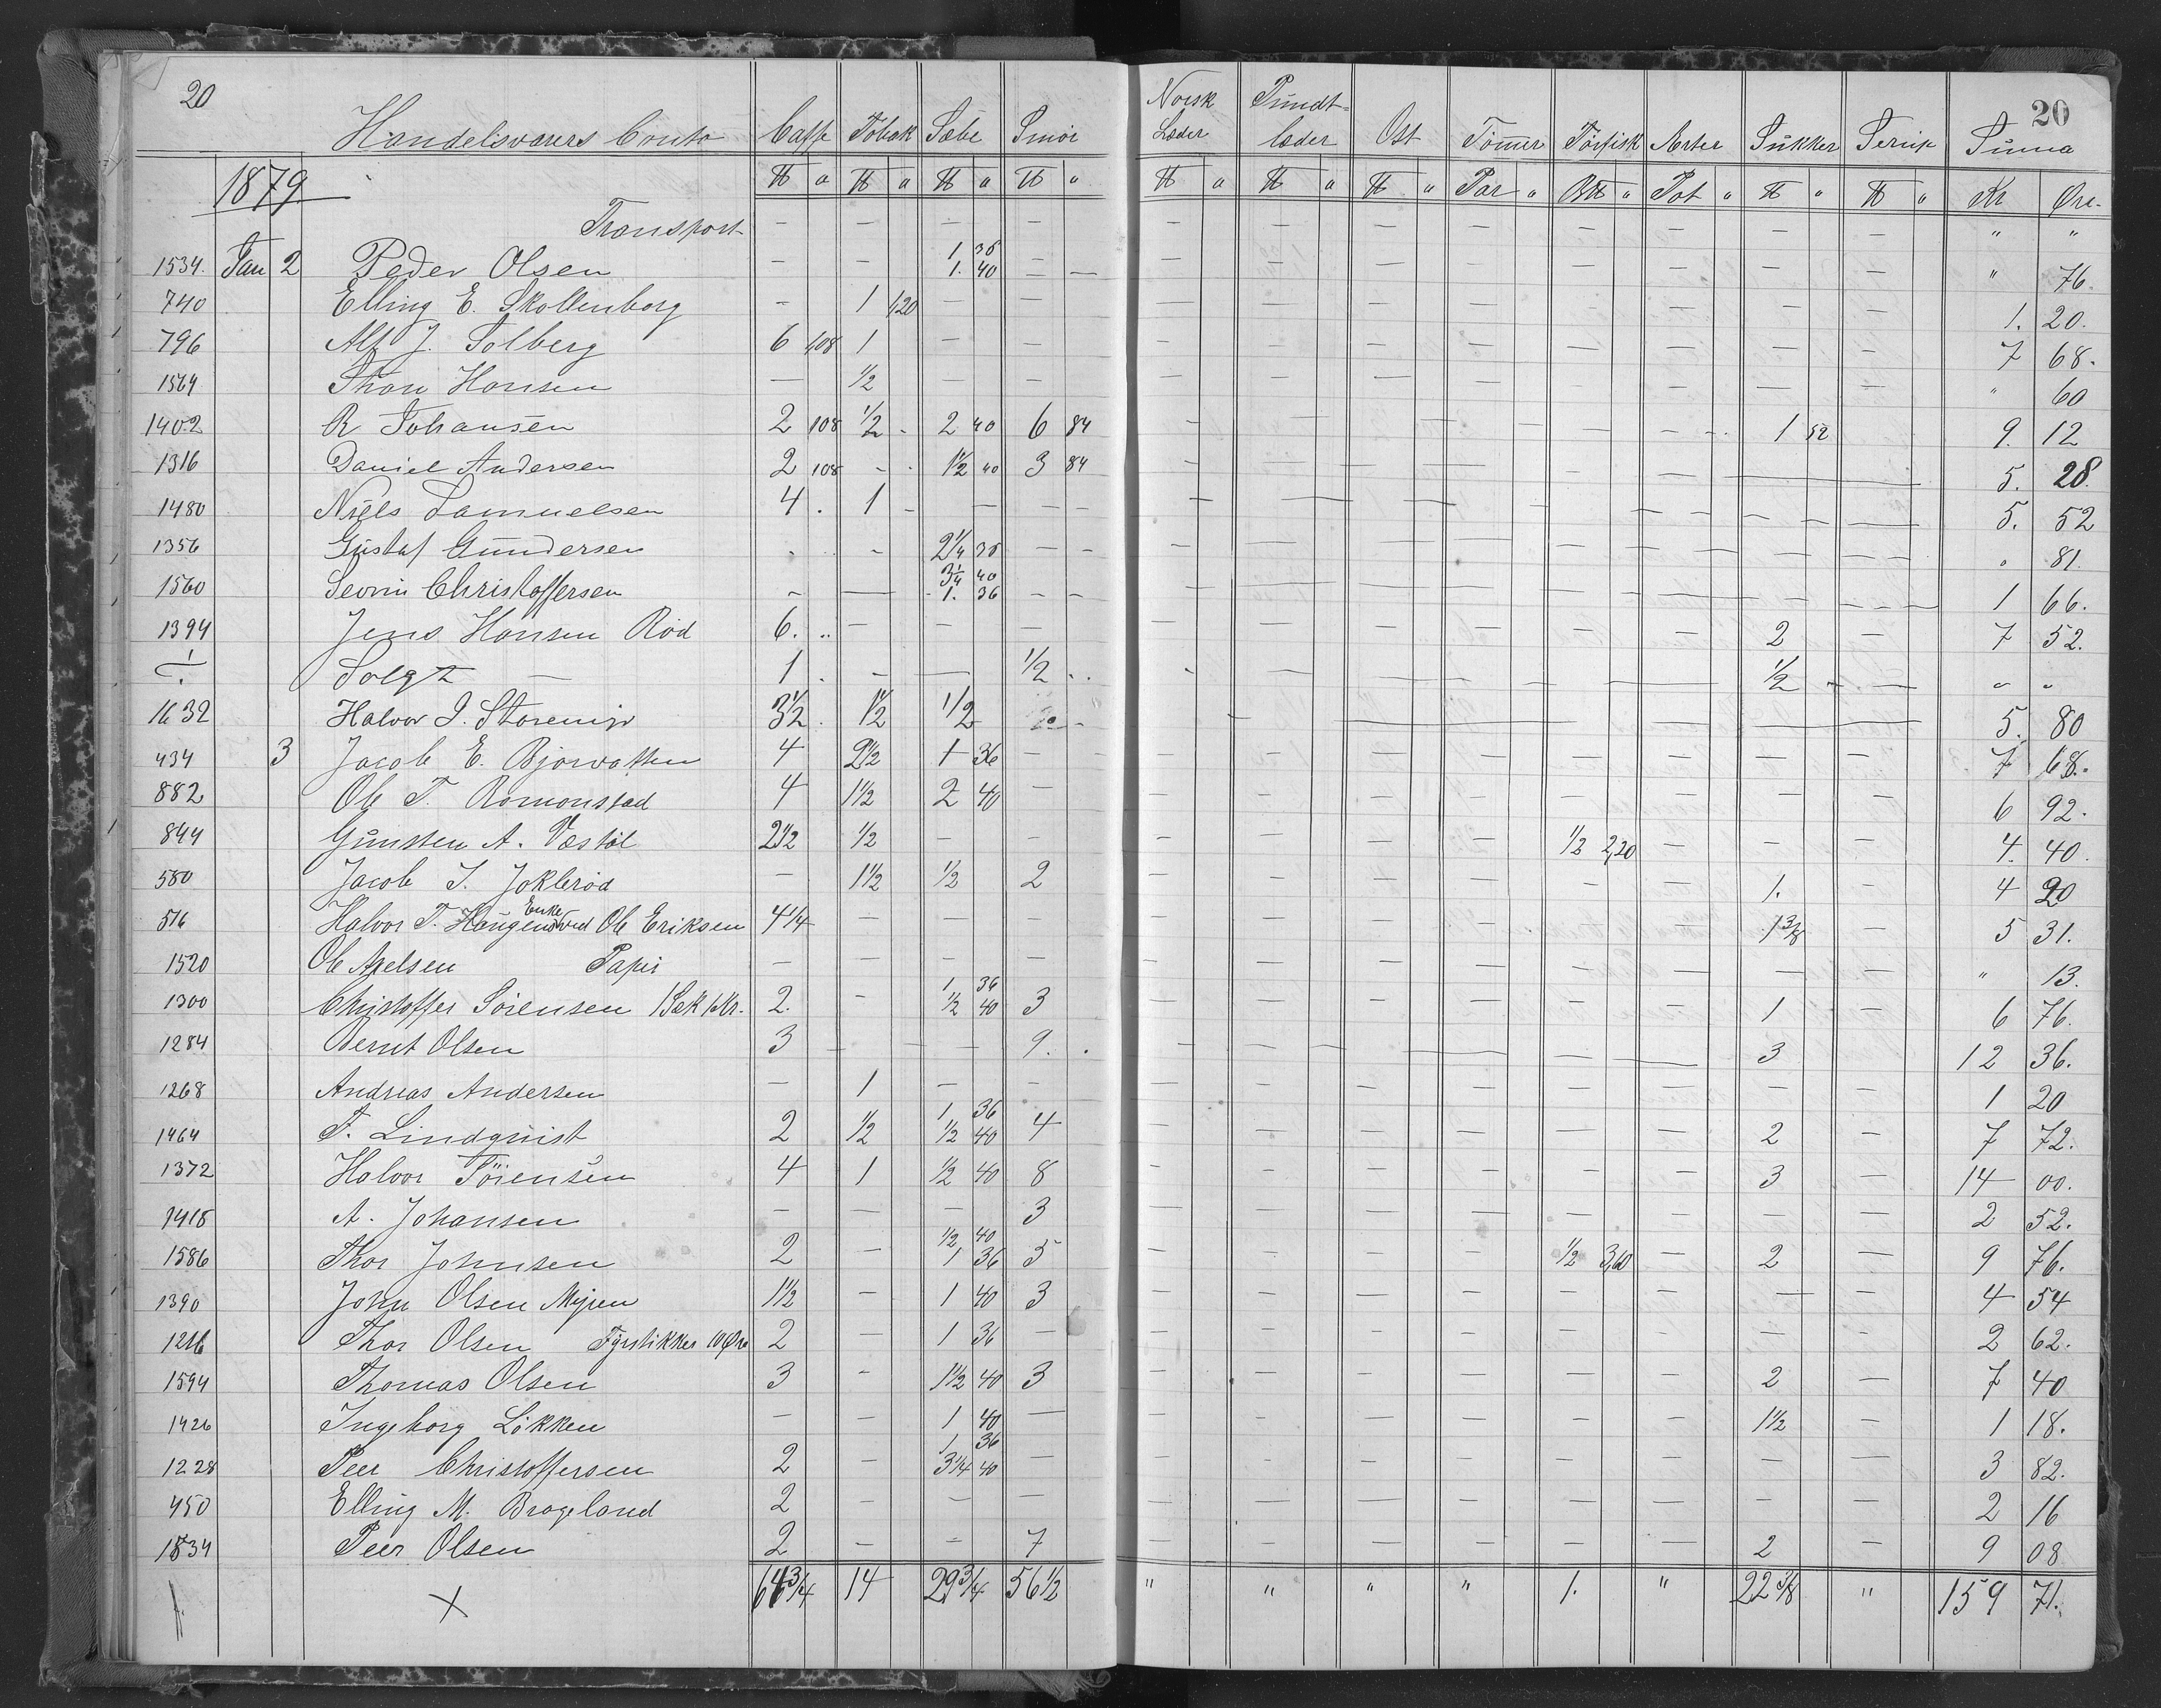 20 Handelsvarers Conto Caffe Tobak Sæbe Smör Norsk Læder Pundt-læder Ost Tömmer Törfisk Ærter Sukker Sirup Summa 20
1879 ℔ a ℔ a ℔ a ℔ " ℔ a ℔ " ℔ " Par " B℔ " Pot " ℔ " ℔ " Kr Øre
Transport - - - - - - - - - - - - " "
1534. Jan 2 Peder Olsen - - 1 36 1. 40 - - " 76.
740 Elling E. Skollenborg - 1 1,20 - - 1. 20.
796 Alf J. Solberg 6 1,08 1 - - 7 68.
1564 Thon Hansen - 1/2 - - " 60
1402 R Johansen 2 108 1/2 - 2 40 6 84 1 52 9. 12
1316 Daniel Andersen 2 108 - - 1 1/2 40 3 84 5. 28.
1480 Niels Samuelsen 4 . 1 - - - - 5. 52
1356 Gustaf Gundersen - - 2 1/4 36 - - " 81.
1560 Sevrin Christoffersen - - 3 1/4 40 1. 36 - - 1 66.
1394 Jens Hansen Röd 6. .. - - - 2 - 7 52.
÷ Solgt - 1 . - - 1/2 .. 1/2 " "
1632 Halvor J. Storemyr 3 1/2 . 1 1/2 1/2 5. 80
434 3 Jacob E. Bjorvatten 4 2 1/2 1 36 - 7 68.
882 Ole T. Romonstad 4 1 1/2 2 40 - 6 92.
844 Gunsten A. Væstöl 2 1/2 1/2 - - 1/2 2,20 4. 40.
580 Jacob J. Jokleröd - 1 1/2 1/2 2 1. - 4 20
516 Halvor T. Haugens Enke ved Ole Eriksen 4 1/4 - - - 1 3/8 - 5 31.
1520 Ole Axelsen Papir - - - - " 13.
1300 Christoffer Sörensen 1 Sæk 1 Kr. 2. - 1 36 1/2 40 3 1 - 6 76.
1284 Bernt Olsen 3 - - 9. . 3 12 36.
1268 Andreas Andersen - 1 - - 1 20
1464 T. Lindquist 2 1/2 1 36 1/2 40 4 2 - 7 72.
1372 Halvor Sörensen 4 1 1/2 40 8 3 - 14 00.
1418 A. Johansen - - - 3 2 52.
1586 Thor Johnsen 2 - 1/2 40 1 36 5 1/2 3,60 - 2 - 9 76.
1390 John Olsen Myren 1 1/2 - 1 40 3 4 54
1216 Thor Olsen Fyrstikker 10 Øre 2 - 1 36 - 2 62.
1594 Thomas Olsen 3 - 1 1/2 40 3 2 - 7 40
1426 Ingeborg Lökken - - 1 40 - 1 1/2 - 1 18.
1228 Peer Christoffersen 2 - 1 36 3 1/4 40 - 3 82.
450 Elling M. Brogeland 2 - - - 2 16
1534 Peer Olsen 2 - - 7 2 - 9 08
X 64 3/4 14 29 3/4 56 1/2 " " " " 1. " 22 3/8 " 159 71.